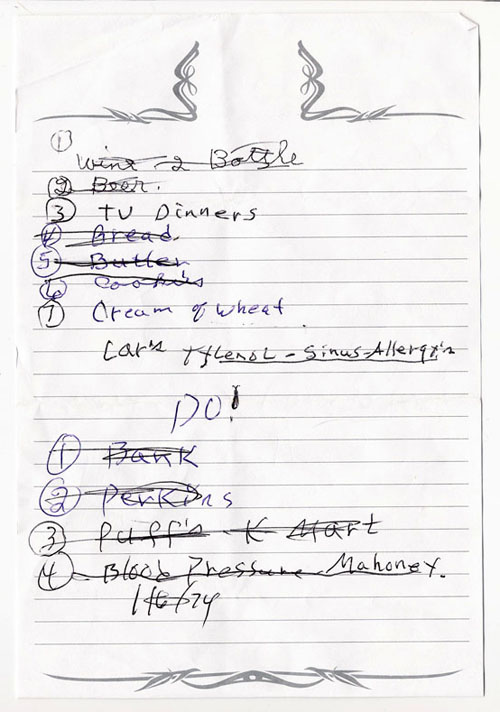 1
Wine 2 Bottle
2 Beer.
3 TV Dinners
4 Bread
5 Butter
6 Cooki's
7 Cream of Wheat
Car's Tylenol - Sinus-Allergy's
DO!
1 Bank
2 Perkins
3 Puff's K Mart
4 Blood Pressure Mahoney.